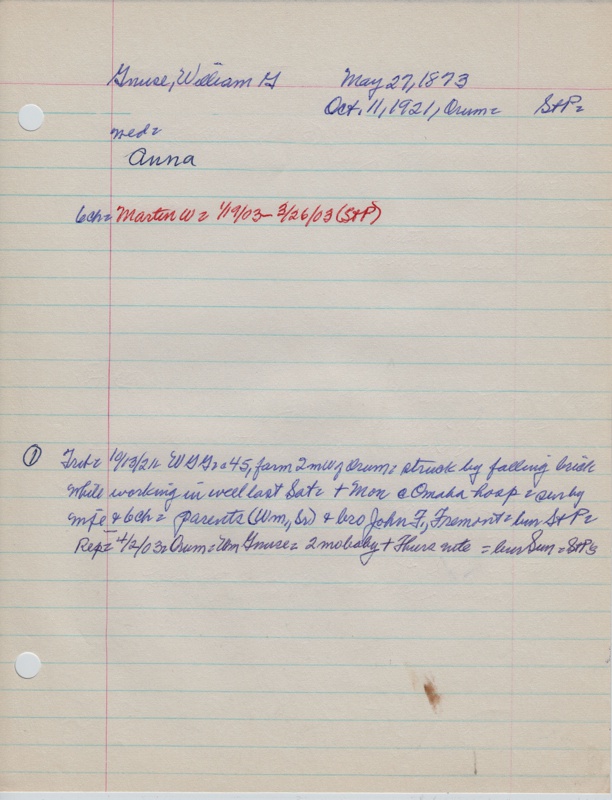 Gnuse, William G May 27, 1873
Oct. 11, 1921, Orum= St P=
med=
Anna
6ch= Martin W= 1/19/03- 3/26/03 (St P)
① Trib= 10/13/21= W G G= a 45, farm 2 m W of Orum= struck by falling brick
while working in well last Sat= + Mon @ Omaha hosp= surv by
wife & 6ch= parents (Wm, Sr) & bro John F, Fremont= bur St P=
Rep= 4/2/03= Orum= Wm Gnuse= 2 mo baby + Thurs nite = bur Sun= St P=